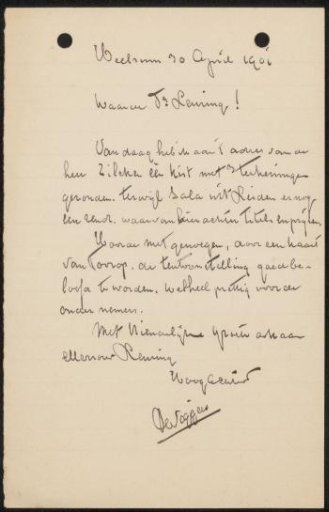 Heelsum 30 April 1901
Waarde Dr Leuring!
Vandaag heb ik aan 't adres van de
heer Zilcken één kist met 3 teekeningen
gezonden. terwijl Sala uit Leiden er nog
één zendt. waarvan hier achter titels en prijzen.
Hoorde met genoegen, door een kaart
van Toorop. de tentoonstelling goed be-
looft te worden. wel heel prettig voor de
ondernemers.
Met vriendelijke groeten ook aan
Mevrouw Leuring
Hoogachtend